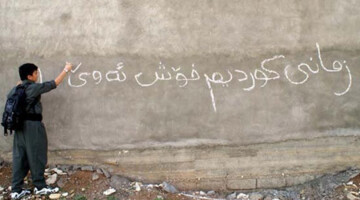 زمانی كوردیم خۆش ئەوێ